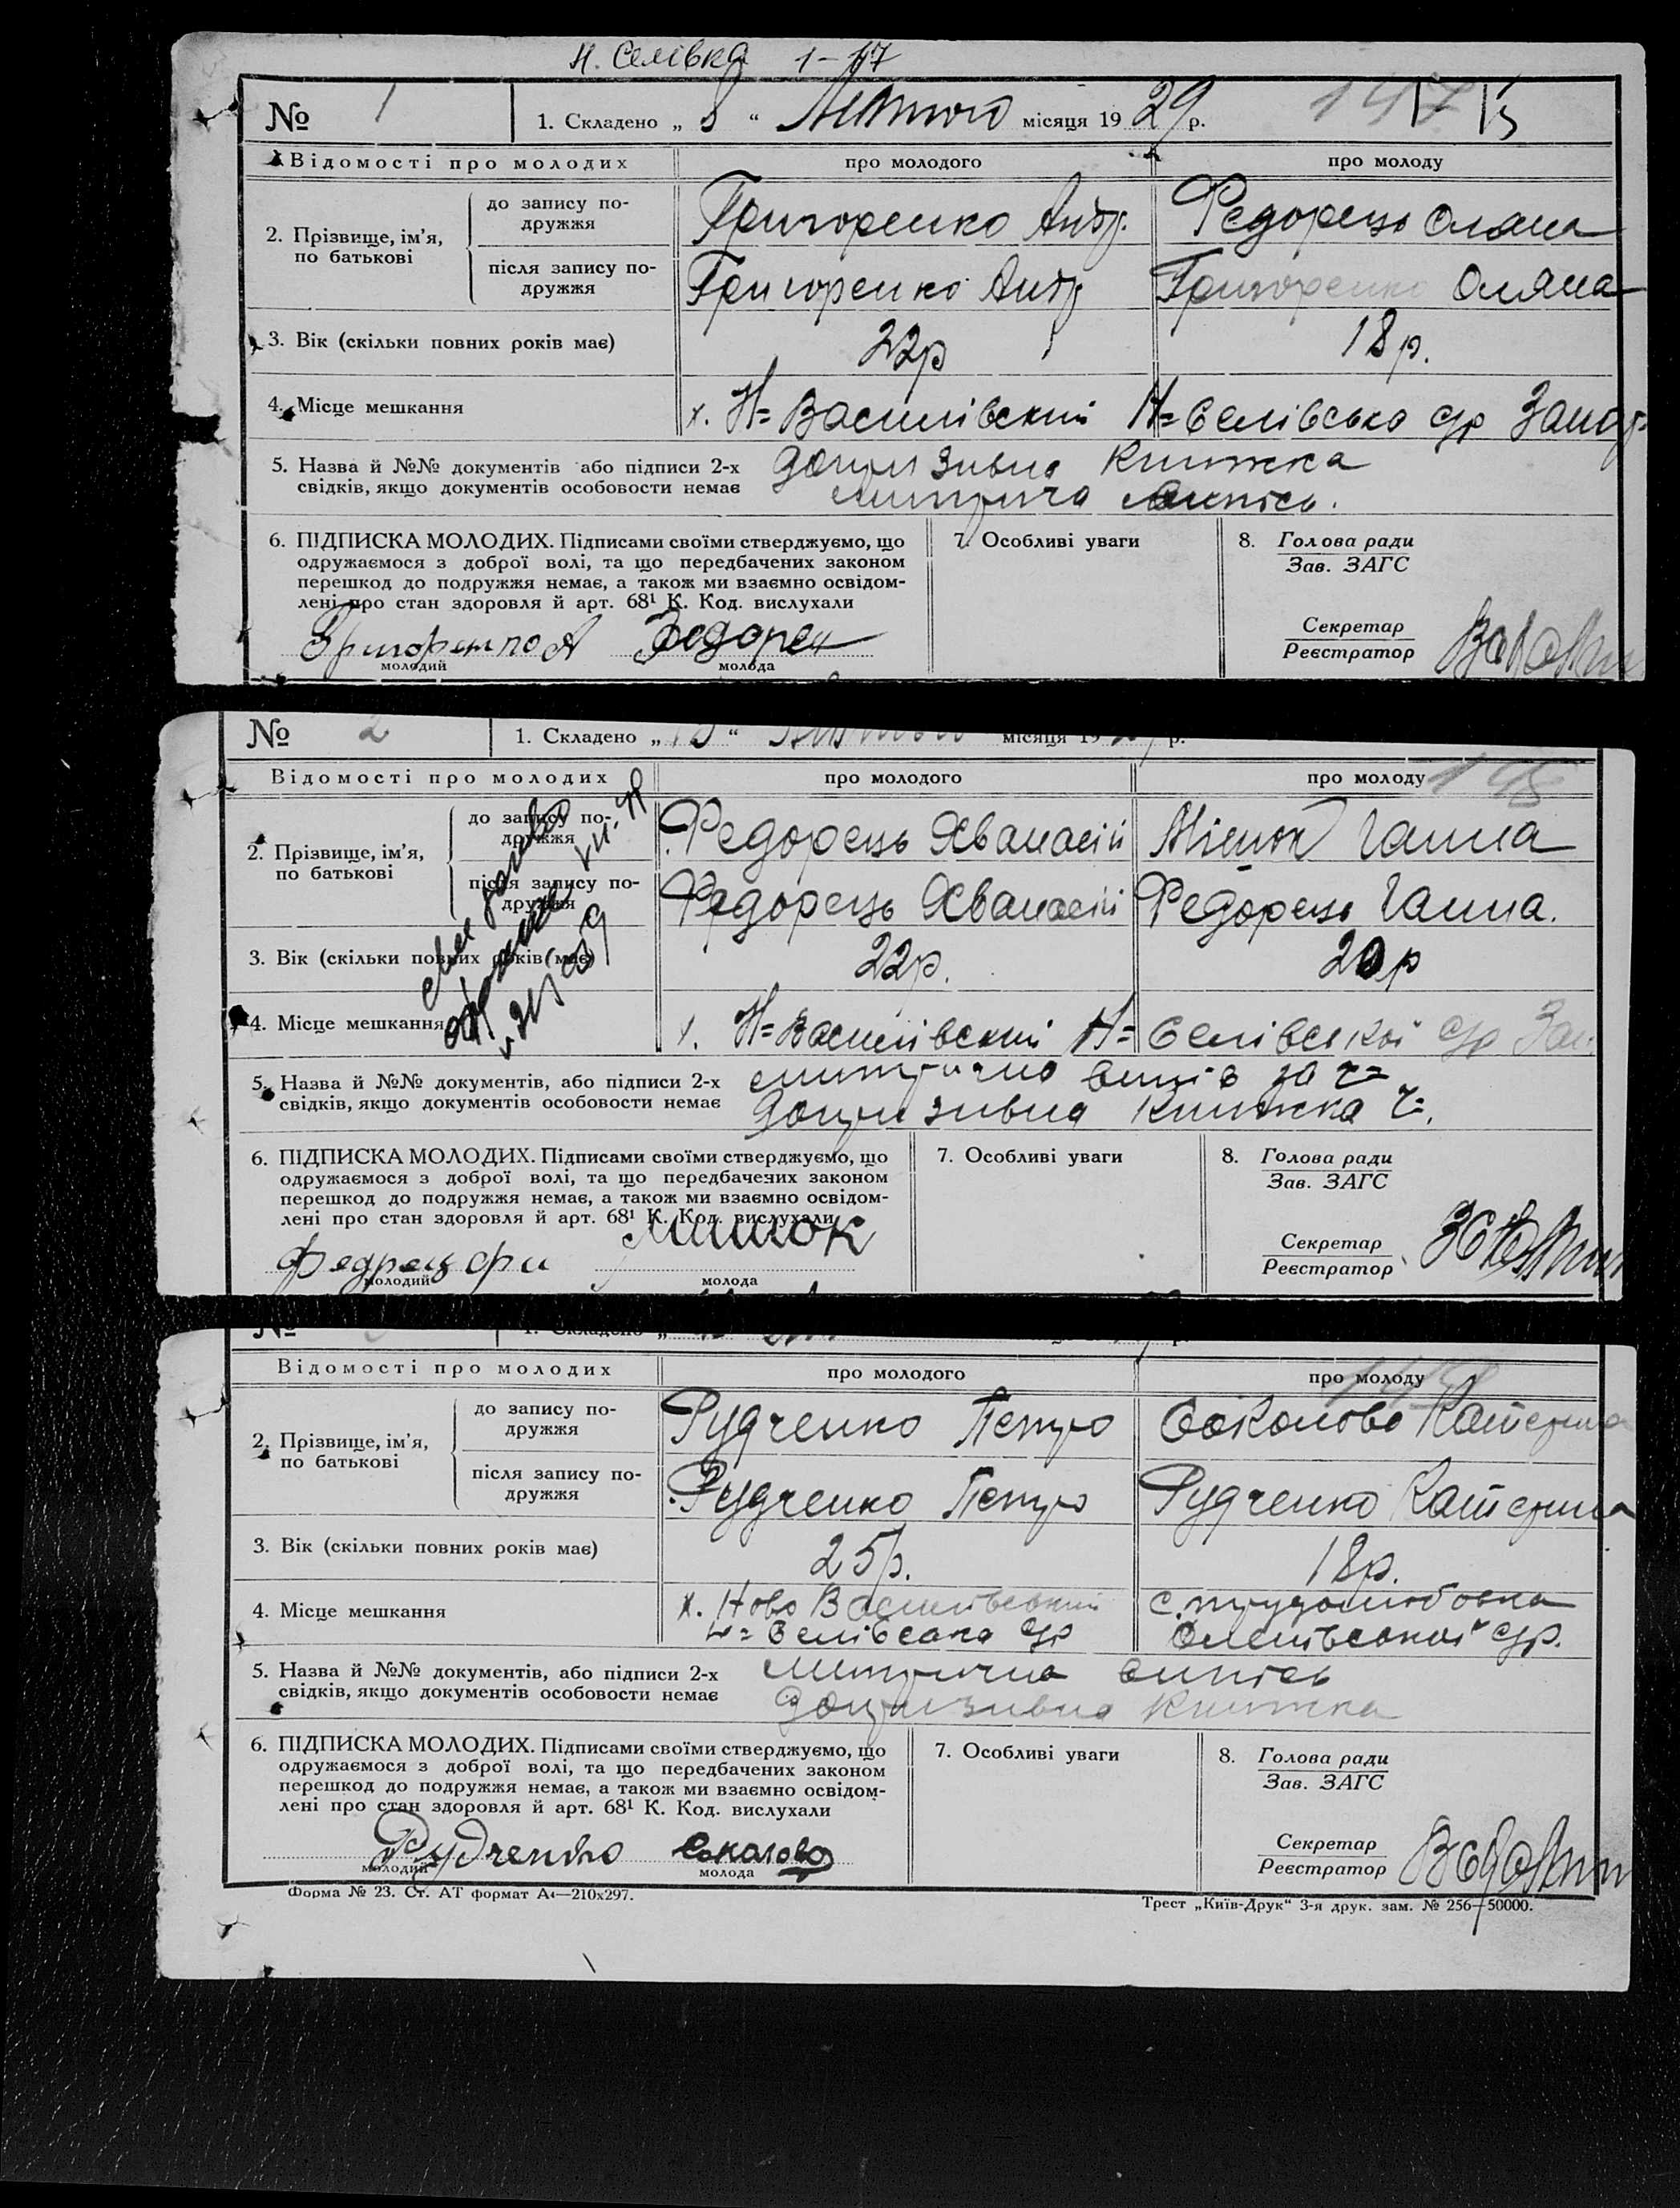 Н. Селівка 1-17
№ 1 1. Складено „ 8 “ Лютого місяця 1929 р.
Відомості про молодих про молодого про молоду
2. Прізвище, ім’я, по батькові
до запису подружжя Григоренко Андр. Федорець Оляна
після запису подружжя Григоренко Андр Григоренко Оляна
3. Вік (скільки повних років має) 22р 18р.
4. Місце мешкання х. Н=Василівский Н=Селівсько с/р Запор
5. Назва й №№ документів або підписи 2-х допризивна книжка
свідків, якщо документів особовости немає метрична випись.
6. ПІДПИСКА МОЛОДИХ. Підписами своїми стверджуємо, що
одружаємося з доброї волі, та що передбачених законом
перешкод до подружжя немає, а також ми взаємно освідом-
лені про стан здоровля й арт. 68¹ К. Код. вислухали
Григоренко А Федорец
молодий молода
7. Особливі уваги
8. Голова ради
Зав. ЗАГС
Секретар
Реєстратор
№ 2 1. Складено „ “ Лютого місяця 19 р.
Відомості про молодих про молодого про молоду
148
2. Прізвище, ім’я, по батькові
до запису по-дружжя Федорець Хванасій Мінюк Ганна
після запису по-дружжя Федорець Хванасій Федорець Ганна.
3. Вік (скільки повних років має) 22р. 20р
4. Місце мешкання х. Н=Василівский Н=Селівської с/р Зап
5. Назва й №№ документів, або підписи 2-х метрична випись за ч=
свідків, якщо документів особовости немає допризивна книжка ч=.
6. ПІДПИСКА МОЛОДИХ. Підписами своїми стверджуємо, що
одружаємося з доброї волі, та що передбачених законом
перешкод до подружжя немає, а також ми взаємно освідом-
лені про стан здоровля й арт. 68¹ К. Код. вислухали
молодий молода
7. Особливі уваги
8. Голова ради
Зав. ЗАГС
Секретар
Реєстратор
№ 1. Складено „
Відомості про молодих про молодого про молоду
2. Прізвище, ім’я, по батькові
до запису по-дружжя Рудченко Петро Соколова Катерина
після запису по-дружжя Рудченко Петро Рудченко Катерина
3. Вік (скільки повних років має) 25р. 18р.
4. Місце мешкання х. Ново Василівский с. трудолюбовка
Н=Селівська с/р Оленівської с/р.
5. Назва й №№ документів, або підписи 2-х метрична випись
свідків, якщо документів особовости немає допризивна книжка
6. ПІДПИСКА МОЛОДИХ. Підписами своїми стверджуємо, що
одружаємося з доброї волі, та що передбачених законом
перешкод до подружжя немає, а також ми взаємно освідом-
лені про стан здоровля й арт. 68¹ К. Код. вислухали
Рудченко Соколова
молодий молода
7. Особливі уваги
8. Голова ради
Зав. ЗАГС
Секретар
Реєстратор
Форма № 23. Ст. АТ формат А4—210х297.
Трест „Київ-Друк“ 3-я друк. зам. № 256—50000.